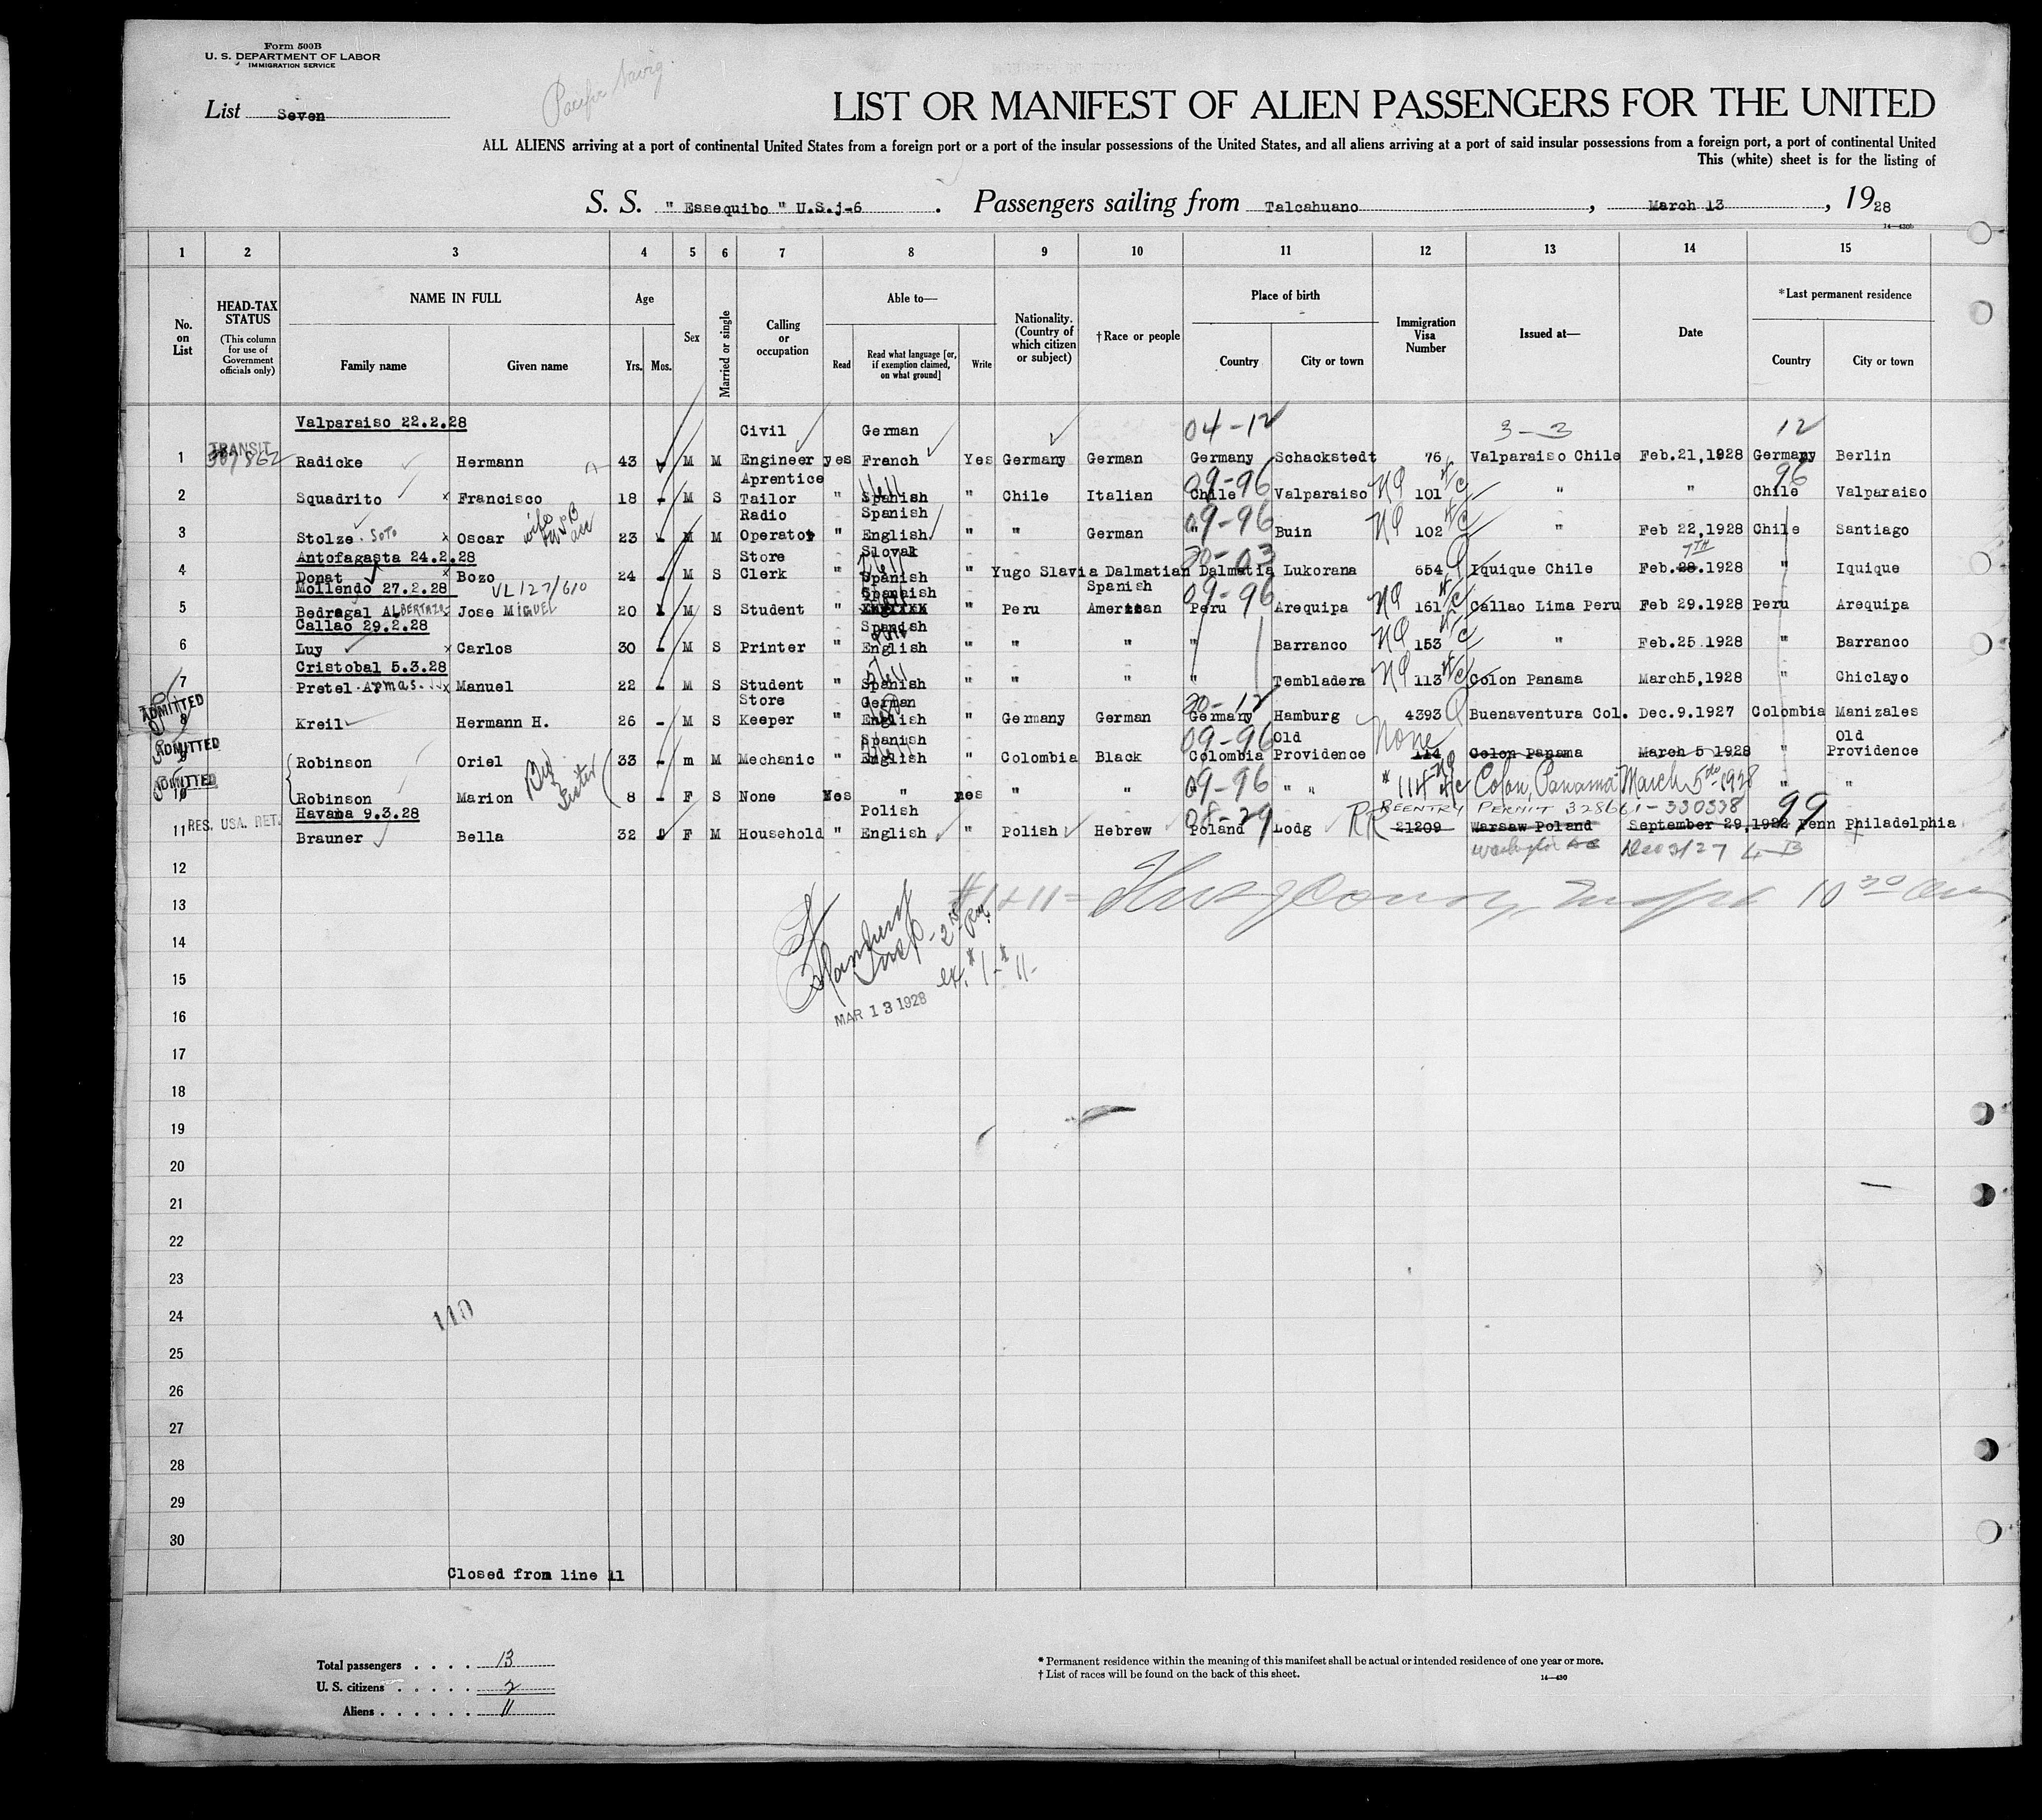 Form 500B
U. S. DEPARTMENT OF LABOR
IMMIGRATION SERVICE
Pacific Navig.
List Seven
LIST OR MANIFEST OF ALIEN PASSENGERS FOR THE UNITED
ALL ALIENS arriving at a port of continental United States from a foreign port or a port of the insular possessions of the United States, and all aliens arriving at a port of said insular possessions from a foreign port, a port of continental United
This (white) sheet is for the listing of
S. S. " Essequibo " U.S.j-6 . Passengers sailing from Talcahuano , March 13 , 1928
14—430b
1 2 3 4 5 6 7 8 9 10 11 12 13 14 15
No. on List
HEAD-TAX STATUS (This column for use of Government officials only)
NAME IN FULL Family name Given name
Age Yrs. Mos.
Sex
Married or single
Calling or occupation
Able to— Read Read what language [or, if exemption claimed, on what ground] Write
Nationality. (Country of which citizen or subject)
†Race or people
Place of birth Country City or town
Immigration Visa Number
Issued at—
Date
*Last permanent residence Country City or town
Valparaiso 22.2.28 Civil German 04-12 3-3 12
TRANSIT
1 307862 Radicke Hermann 43 - M M Engineer yes Franch Yes Germany German Germany Schackstedt 76 Valparaiso Chile Feb.21,1928 Germany Berlin
Aprentice 09-96 96
2 Squadrito x Francisco 18 - M S Tailor " Spanish " Chile Italian Chile Valparaiso NQ 101 4/c " " Chile Valparaiso
Radio Spanish 09-96
3 Stolze. SOTO x Oscar wife 23 - M M Operator " English " " German " Buin NQ 102 4/c " Feb 22,1928 Chile Santiago
Antofagasta 24.2.28 Store Slovak 20-03 7TH
4 Donat x Bozo 24 - M S Clerk " Spanish " Yugo Slavia Dalmatian Dalmatia Lukorana 654 Q Iquique Chile Feb.28.1928 " Iquique
Mollendo 27.2.28 VL 127/610 Spanish Spanish 09-96
5 Bedregal ALBERTAZO x Jose MIGUEL 20 - M S Student " English " Peru American Peru Arequipa NQ 161 4/c Callao Lima Peru Feb 29.1928 Peru Arequipa
Callao 29.2.28 Spanish
6 Luy x Carlos 30 - M S Printer " English " " " " Barranco NQ 153 4/c " Feb.25 1928 " Barranco
Cristobal 5.3.28
7 Pretel Armas. x Manuel 22 - M S Student " Spanish " " " " Tembladera NQ 113 4/c Colon Panama March5,1928 " Chiclayo
ADMITTED Store German 20-12
8 Kreil Hermann H. 26 - M S Keeper " English " Germany German Germany Hamburg 4393 Q Buenaventura Col. Dec.9.1927 Colombia Manizales
ADMITTED Spanish 09-96 Old None Old
9 Robinson Oriel 33 - m M Mechanic " English " Colombia Black Colombia Providence 114 Colon Panama March 5 1928 " Providence
ADMITTED Sister 09-96
10 Robinson Marion 8 - F S None Yes " nes " " " " " " 114 NQ 4/c Colon, Panama March 5th 1928 " "
Havana 9.3.28 Polish 08-29 REENTRY PERMIT 328661-330338 99
11 RES. USA. RET. Brauner Bella 32 - F M Household " English " Polish Hebrew Poland Lodg RR 21209 Warsaw Poland September 29,1922 Penn Philadelphia
Washington DC Dec 3/27
12
13 #1 & 11 = 10 30 am
14 Insp - 2
15 ex. #1-#11-
MAR 13 1928
16
17
18
19
20
21
22
23
24 110
25
26
27
28
29
30
Closed from line 11
Total passengers . . . . 13
U. S. citizens . . . . . 2
Aliens . . . . . . 11
* Permanent residence within the meaning of this manifest shall be actual or intended residence of one year or more.
† List of races will be found on the back of this sheet.
14—430